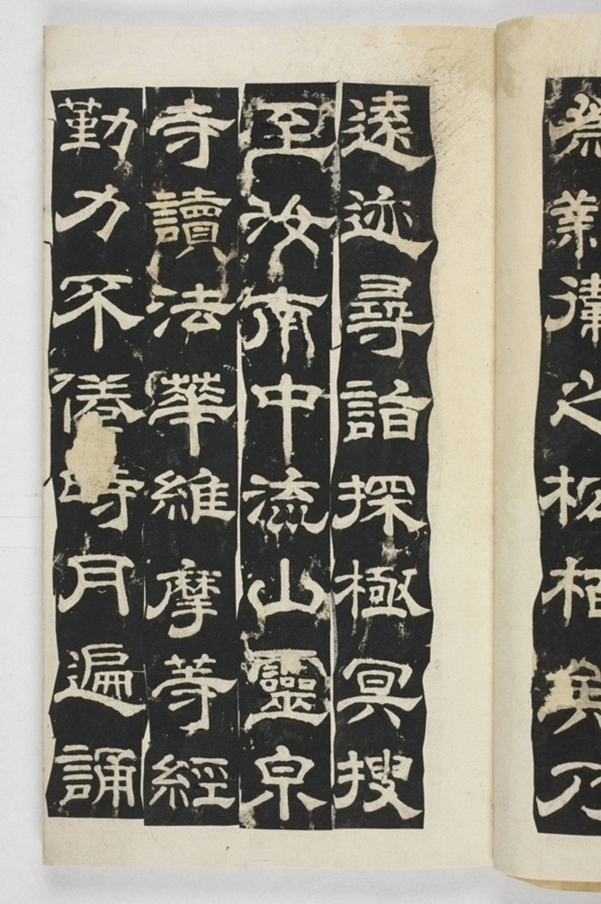 業衛之松栢矣乃
遠迹尋詣探極冥搜
至汝南中流山靈泉
寺讀法華維摩等經
勤力不倦時月遍誦